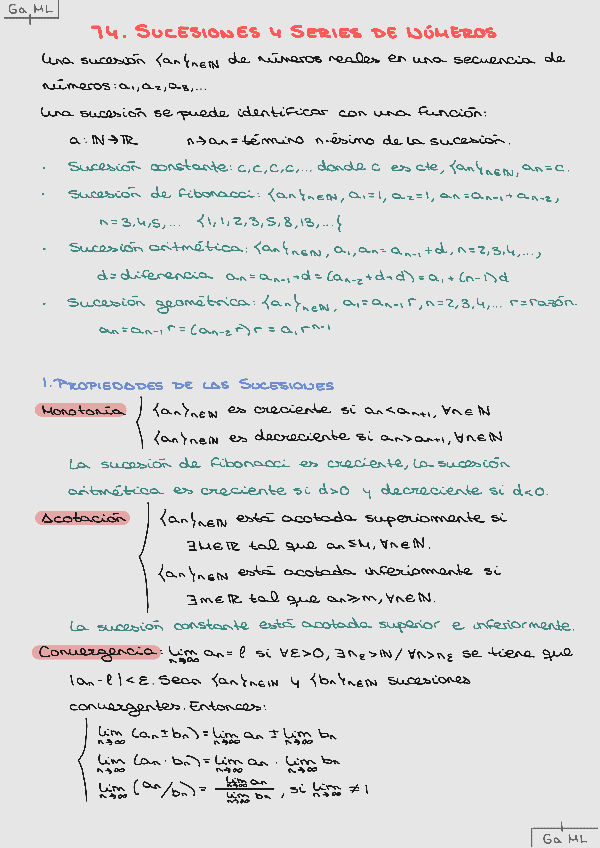 Ga ML
T4. SUCESIONES Y SERIES DE NÚMEROS
Una sucesión {an}n∈ℕ de números reales en una secuencia de
números: a₁, a₂, a₃,...
Una sucesión se puede identificar con una función:
a: ℕ→ℝ n→an = término n-ésimo de la sucesión.
· Sucesión constante: c,c,c,c,... donde c es cte, {an}n∈ℕ, an=c.
· Sucesión de Fibonacci: {an}n∈ℕ, a₁=1, a₂=1, an=an-1+an-2,
n=3,4,5,... {1,1,2,3,5,8,13,...}
· Sucesión aritmética: {an}n∈ℕ, a₁, an=an-1+d, n=2,3,4,...,
d=diferencia an=an-1+d=(an-2+d+d)=a₁+(n-1)d
· Sucesión geométrica: {an}n∈ℕ, a₁=an-1 r, n=2,3,4,... r=razón.
an=an-1 r=(an-2 r)r=a₁rⁿ⁻¹
1. PROPIEDADES DE LAS SUCESIONES
Monotonía {an}n∈ℕ es creciente si an<an+1, ∀n∈ℕ
{an}n∈ℕ es decreciente si an>an+1, ∀n∈ℕ
La sucesión de Fibonacci es creciente, la sucesión
aritmética es creciente si d>0 y decreciente si d<0.
Acotación {an}n∈ℕ está acotada superiormente si
∃M∈ℝ tal que an≤M, ∀n∈ℕ.
{an}n∈ℕ está acotada inferiormente si
∃m∈ℝ tal que an≥m, ∀n∈ℕ.
La sucesión constante está acotada superior e inferiormente.
Convergencia: lim n→∞ an=ℓ si ∀ε>0, ∃nε>ℕ/ ∀n>nε se tiene que
|an-ℓ|<ε. Sean {an}n∈ℕ y {bn}n∈ℕ sucesiones
convergentes. Entonces:
lim n→∞ (an±bn)=lim n→∞ an ± lim n→∞ bn
lim n→∞ (an·bn)=lim n→∞ an · lim n→∞ bn
lim n→∞ (an/bn)= lim n→∞ an / lim n→∞ bn, si lim n→∞ ≠1
Ga ML